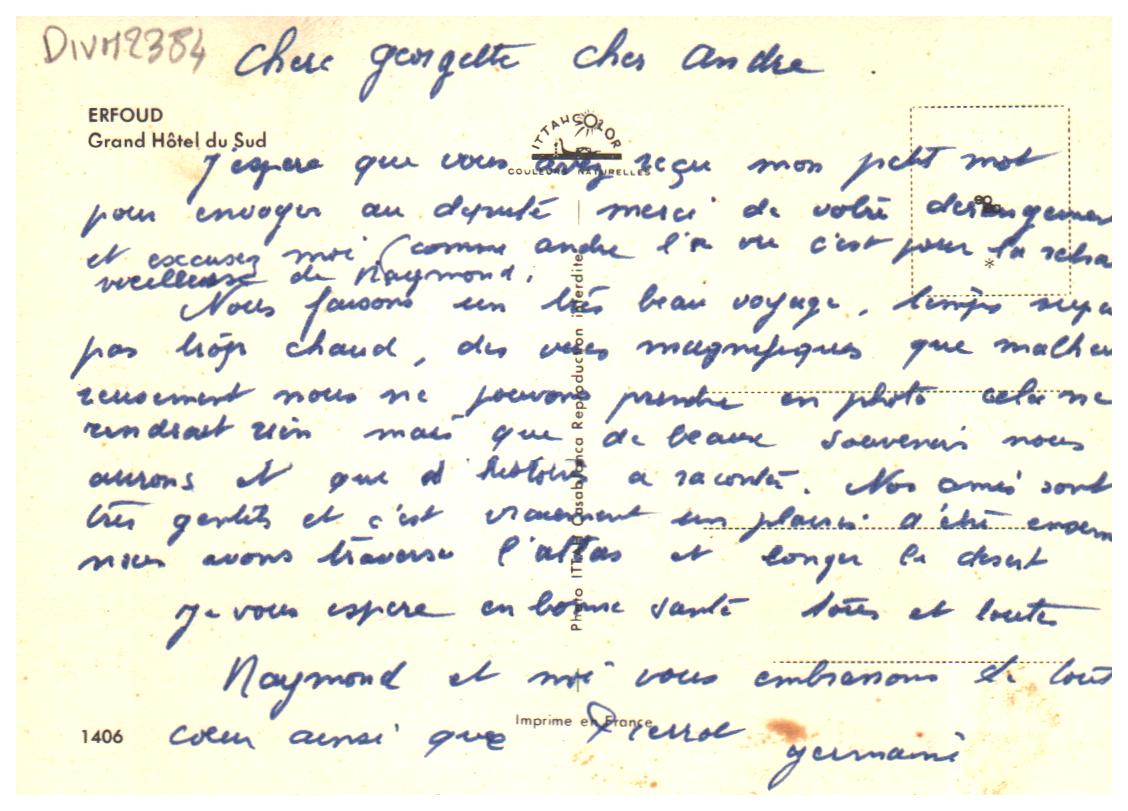 DIVM2384
Chere georgette cher andre
ERFOUD
Grand Hôtel du Sud
ITTAHCOLOR
COULEURS NATURELLES
J'espere que vous avez reçu mon petit mot
pour envoyer au deputé merci de votre derangemen
et excusez moi (comme andre l'a vu c'est pour la retra
vieillesse de Raymond.
Nous faisons un très beau voyage, temps supe
pas trop chaud, des vues magnifiques que malheu
reusement nous ne pouvons prendre en photo cela ne
rendrait rien mais que de beaux souvenirs nous
aurons et que d'histoires a raconté. Nos amis sont
très gentils et c'est vraiment un plaisir d'être ensem
nous avons traverse l'atlas et longer le desert
Je vous espere en bonne santé tous et toutes
Raymond et moi vous embrassons de tout
cœur ainsi que Pierrot
germaine
Photo ITTAH Casablanca Reproduction interdite
Imprime en France
1406